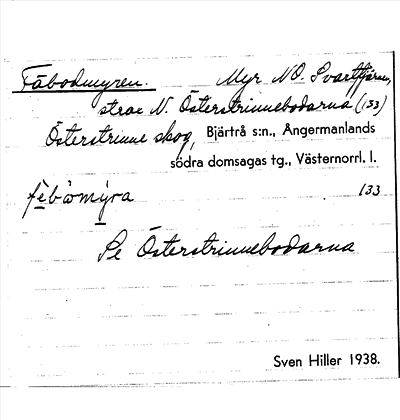 Fäbodmyren. Myr NO. Svarttjärn,
strax N. Österstrinnebodarna (133)
Österstrinne skog, Bjärtrå s:n., Ångermanlands
södra domsagas tg., Västernorrl. l.
133
Se Österstrinnebodarna
Sven Hiller 1938.